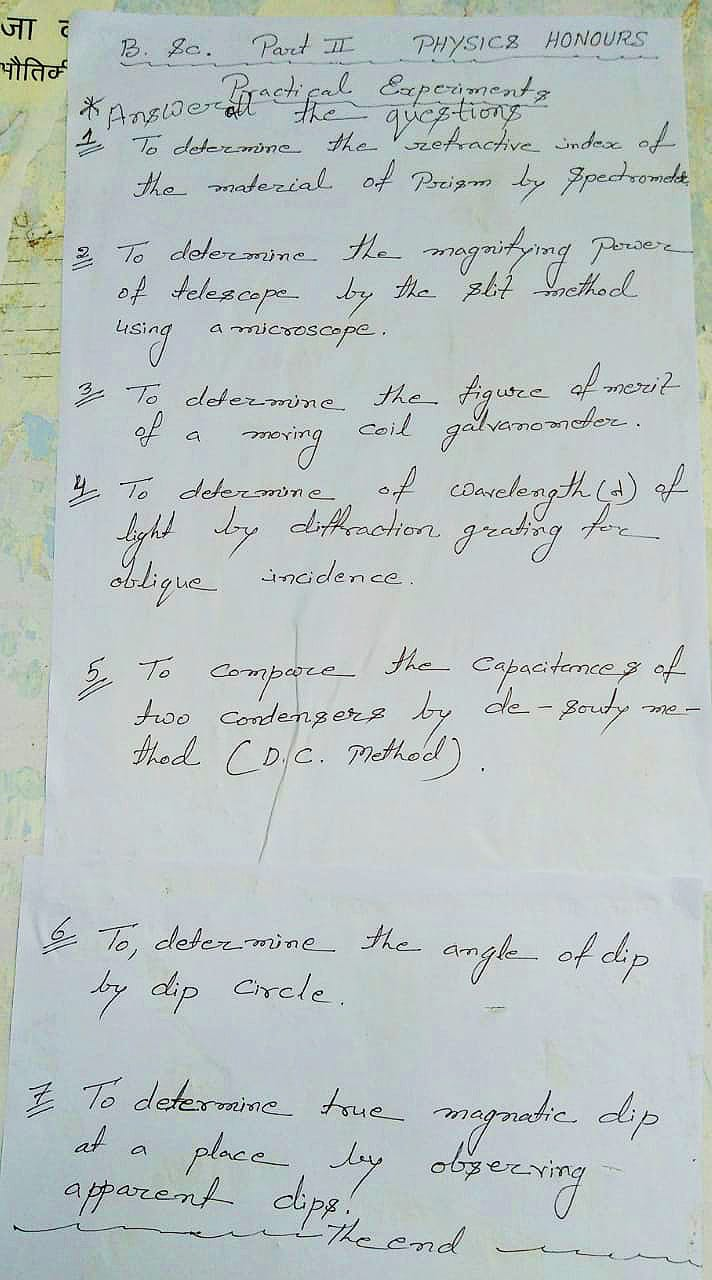 जा
भौतिक
B. Sc. Part II PHYSICS HONOURS
Practical Experiments
* Answer all the questions
1 To determine the refractive index of
the material of Prism by Spectrometer
2 To determine the magnifying Power
of telescope by the slit method
using a microscope.
3 To determine the figure of merit
of a moving coil galvanometer.
4 To determine of wavelength (λ) of
light by diffraction grating for
oblique incidence.
5 To compare the Capacitances of
two condensers by de-Souty me-
thod (D.C. Method).
6 To, determine the angle of dip
by dip Circle.
7 To determine true magnatic dip
at a place by observing
apparent dips.
The end